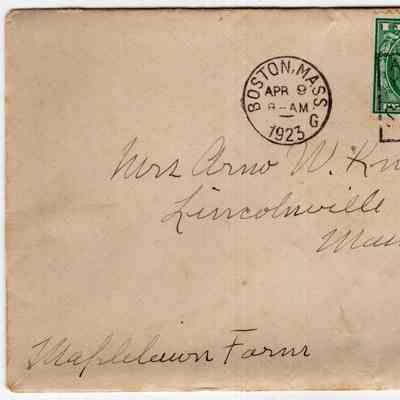 BOSTON, MASS.
APR 9
8-AM
1923
G
Mrs Arno W. Kn
Lincolnville
Maplelawn Farm